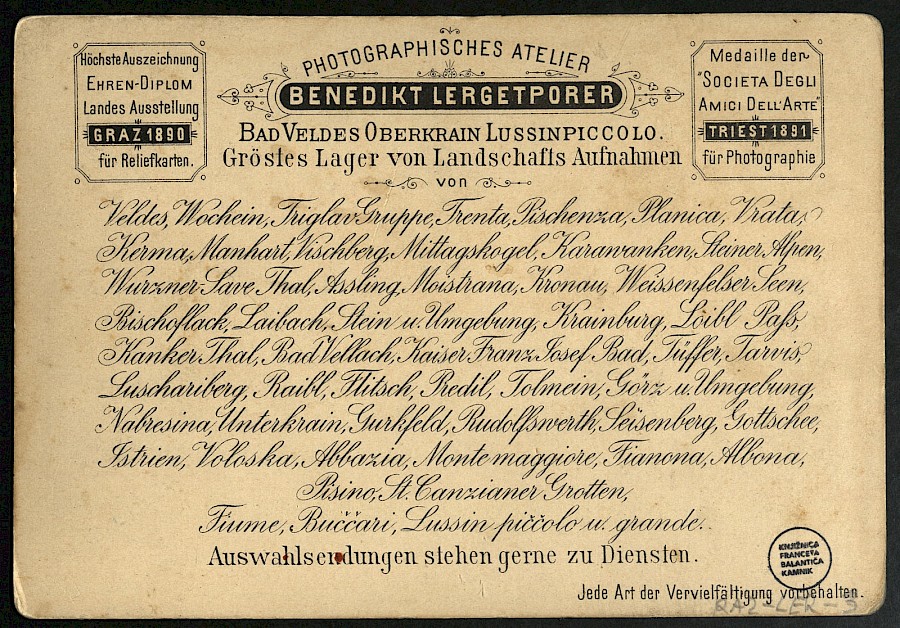 Höchste Auszeichnung
EHREN-DIPLOM
Landes Ausstellung
GRAZ 1890
für Reliefkarten.
PHOTOGRAPHISCHES ATELIER
BENEDIKT LERGETPORER
BAD VELDES OBERKRAIN LUSSINPICCOLO.
Gröstes Lager von Landschafts Aufnahmen
von
Medaille der
"SOCIETA DEGLI
AMICI DELL'ARTE"
TRIEST 1891
für Photographie
Veldes, Wochein, Triglav Gruppe, Trenta, Pischenza, Planica, Vrata,
Kerma, Manhart, Vischberg, Mittagskogel, Karawanken, Steiner Alpen,
Wurzner-Save Thal, Assling, Moistrana, Kronau, Weissenfelser Seen,
Bischoflack, Laibach, Stein u. Umgebung, Krainburg, Loibl Paſs,
Kanker Thal, Bad Vellach, Kaiser Franz Josef Bad, Tüffer, Tarvis,
Luschariberg, Raibl, Flitsch, Predil, Tolmein, Görz u. Umgebung,
Nabresina, Unterkrain, Gurkfeld, Rudolfswerth, Seisenberg, Gottschee,
Istrien, Voloska, Abbazia, Monte maggiore, Fianona, Albona,
Pisino, St. Canzianer Grotten,
Fiume, Buččari, Lussin piččolo u. grande.
Auswahlsendungen stehen gerne zu Diensten.
KNJIŽNICA
FRANCETA
BALANTIČA
KAMNIK
Jede Art der Vervielfältigung vorbehalten.